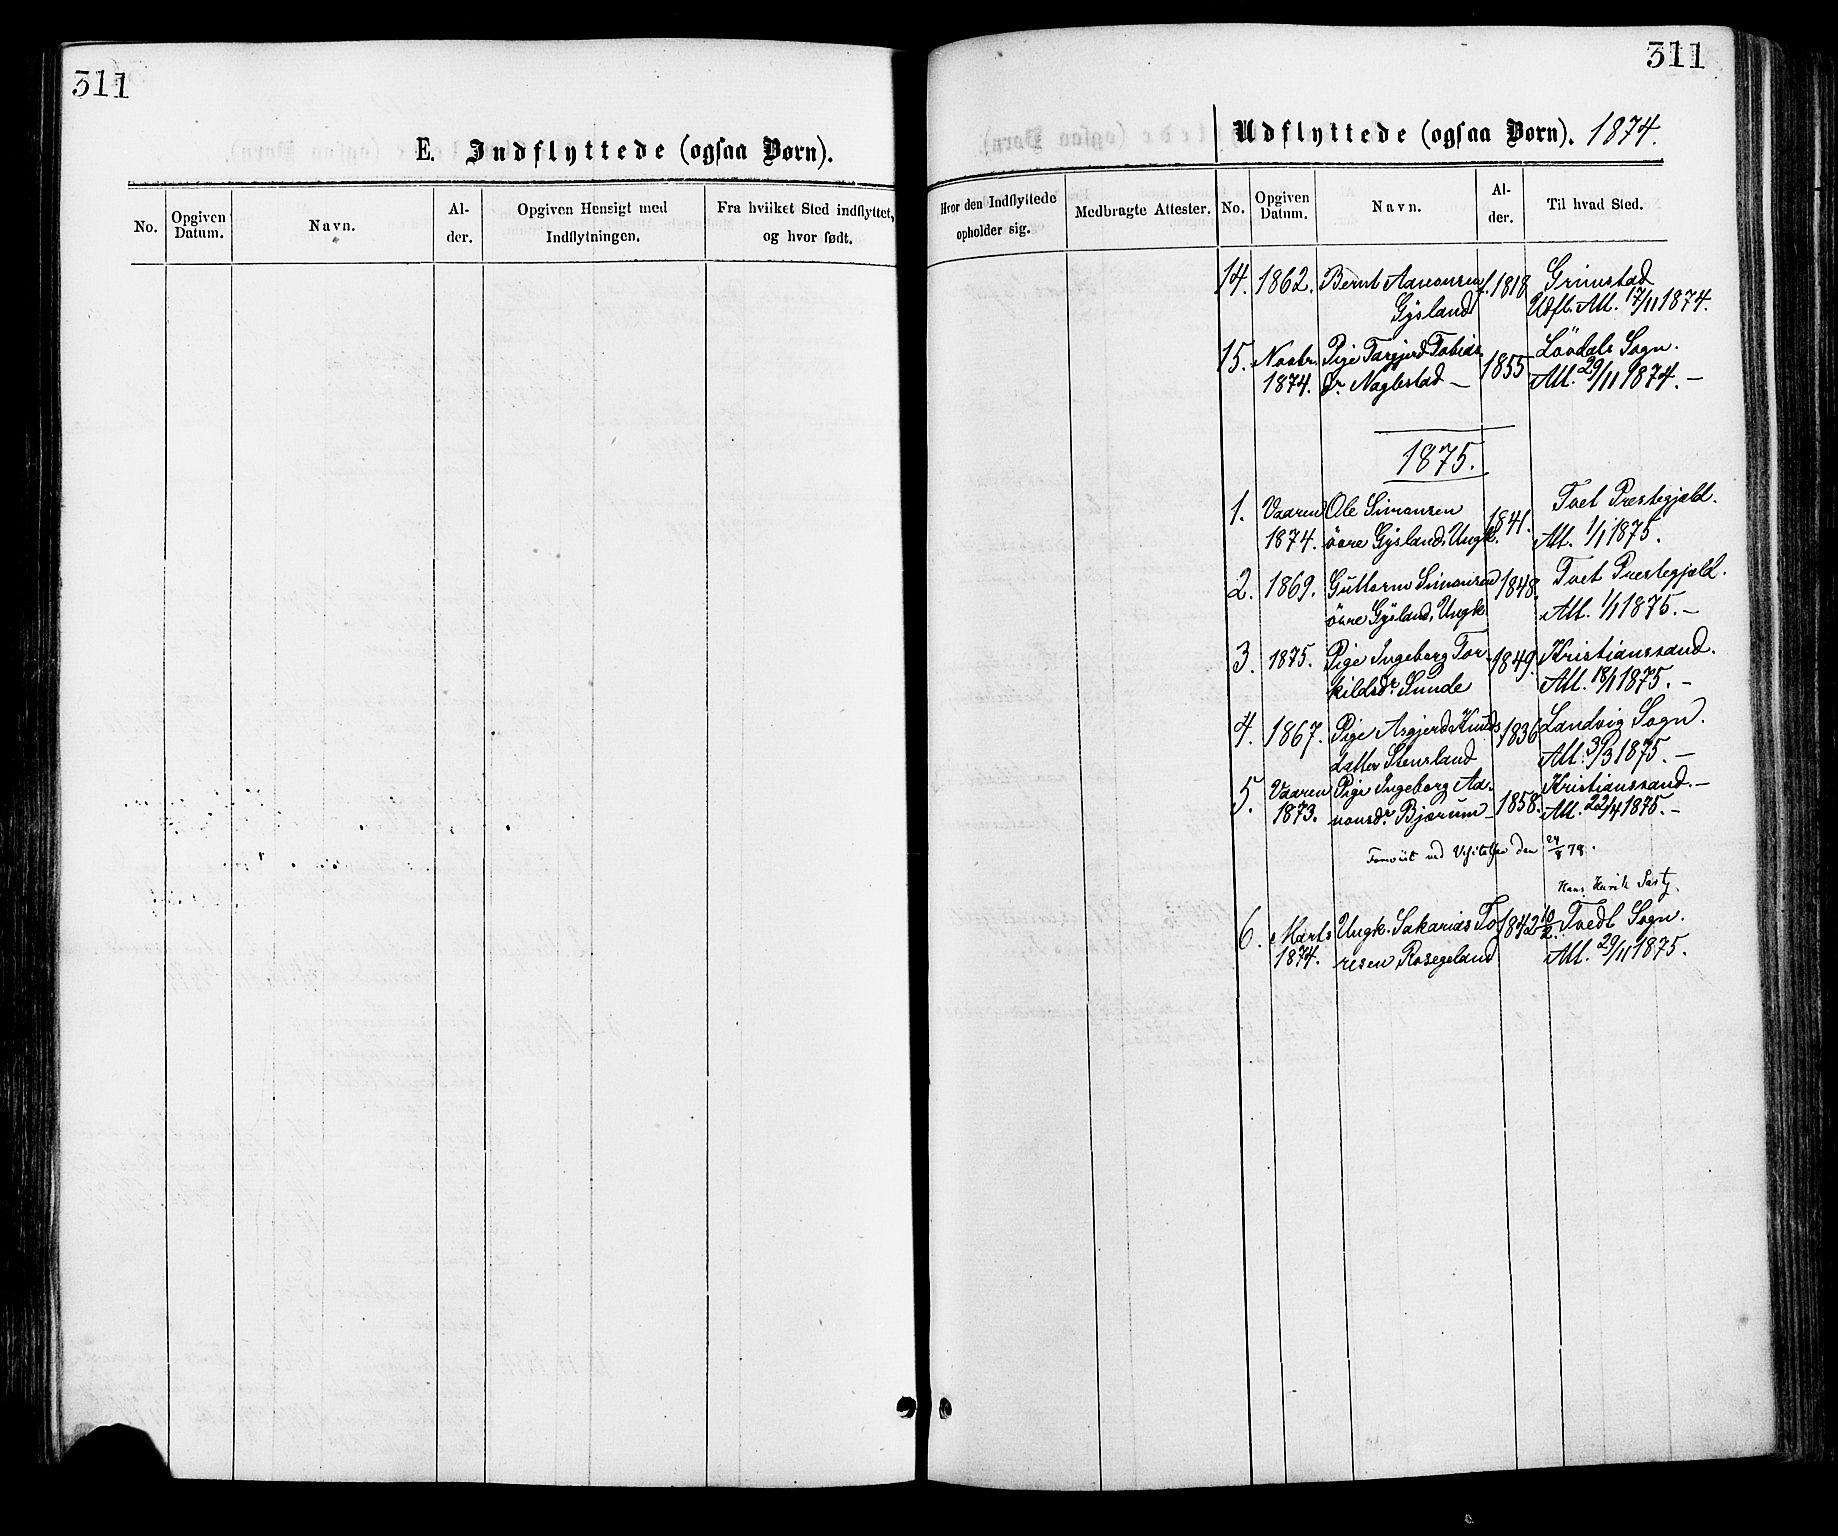 311
311
E. Indflyttede (ogsaa Børn).
Udflyttede (ogsaa Børn). 1874.
No.
Opgiven Datum.
Navn.
Al-
der.
Opgiven Hensigt med
Indflytningen.
Fra hvilket Sted indflyttet,
og hvor født.
Hvor den Indflyttede
opholder sig.
Medbragte Attester.
No.
Opgiven
Datum.
Navn.
Al-
der.
Til hvad Sted.
14. 1862. Bernt Aanonsen f. 1818 Grimstad
Gysland Udfl. Att. 17/11 1874.
15. Novbr. Pige Targjerd Tobias 1855 Lövdals Sogn.
1874. dr. Naglestad — Att. 29/11 1874. —
1875.
1. Vaaren Ole Simonsen 1841. Tvet Præstegjæld.
1874. övre Gysland, Ungk. Att. 1/1 1875.
2. 1869. Guttorm Simonsen 1848. Tvet Præstegjæld.
övre Gysland, Ungk. Att. 1/1 1875. —
3. 1875. Pige Ingeborg Tor- 1849. Kristianssand.
kildsdr. Sunde Att. 18/1 1875. —
4. 1867. Pige Asgjerd Knuds 1836 Landvig Sogn.
datter Stensland Att. 3/3 1875. —
5. Vaaren Pige Ingeborg Aa- 1858. Kristianssand. —
1873. nonsdr. Bjærum — Att. 22/4 1875. —
ved Visitatsen den 24/8 78.
Hans Henrik
6. Marts Ungk. Sakarias To- 1842 10/2. Tvedt Sogn.
1874. resen Rosegeland Att. 29/11 1875.